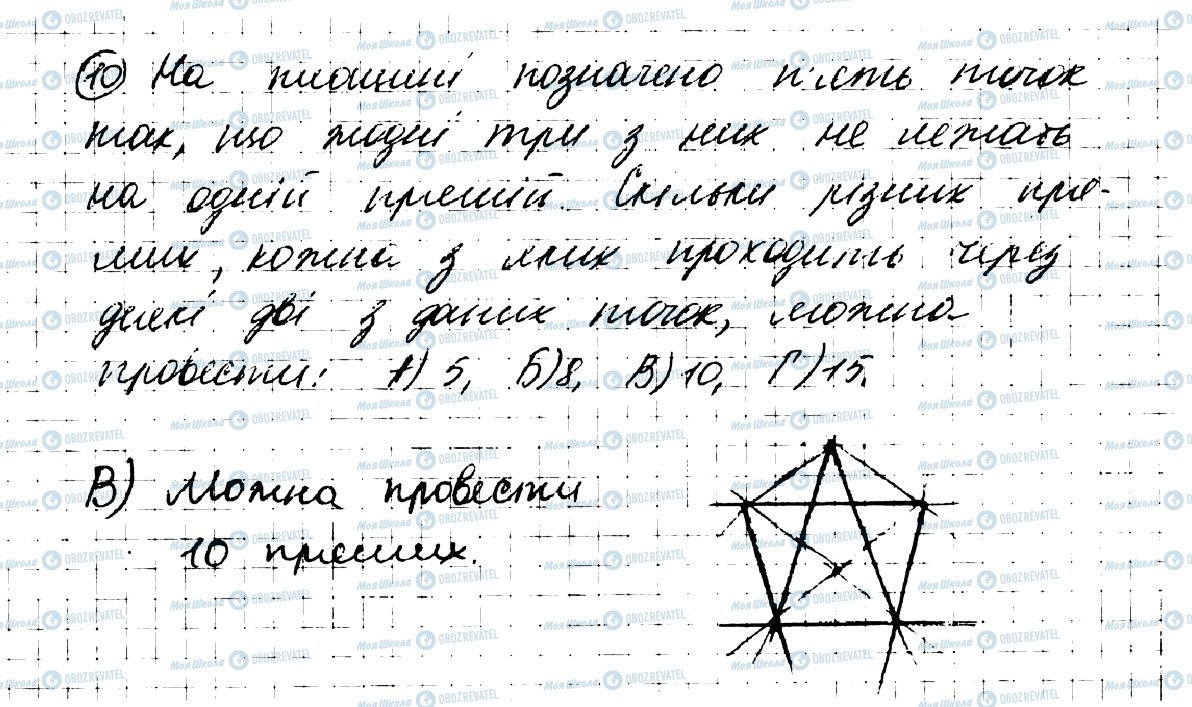 10 На площині позначено п'ять точок
так, що жодні три з них не лежать
на одній прямій. Скільки різних пря-
мих, кожна з яких проходить через
деякі дві з даних точок, можна
провести: А) 5, Б) 8, В) 10, Г) 15.
В) Можна провести
10 прямих.